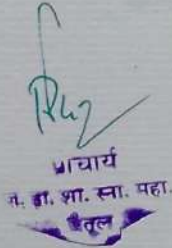 प्राचार्य
शा. स्ना. महा.
बैतूल